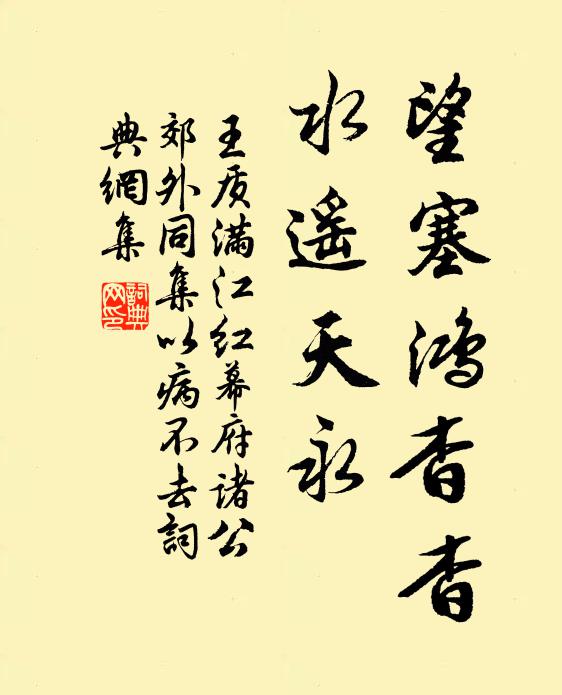 望塞鸿杳杳
水遥天永
王质满江红幕府诸公
郊外同集以病不去词
典網集
詞典網印